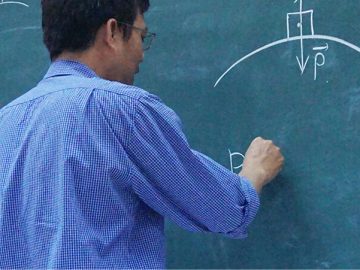 p⃗
P